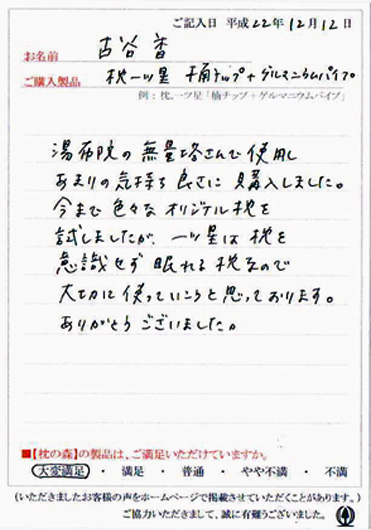 ご記入日 平成22年12月12日
お名前 古谷 香
ご購入製品 枕一ツ星 楠チップ+ゲルマニウムパイプ
例：枕一ツ星「楠チップ+ゲルマニウムパイプ」
湯布院の無量塔さんで使用し
あまりの気持ち良さに購入しました。
今まで色々なオリジナル枕を
試しましたが、一ツ星は枕を
意識せず眠れる枕なので
大切に使っていこうと思っております。
ありがとうございました。
■【枕の森】の製品は、ご満足いただけていますか。
大変満足 ・ 満足 ・ 普通 ・ やや不満 ・ 不満
(いただきましたお客様の声をホームページで掲載させていただくことがあります。)
ご協力いただきまして、誠に有難うございました。